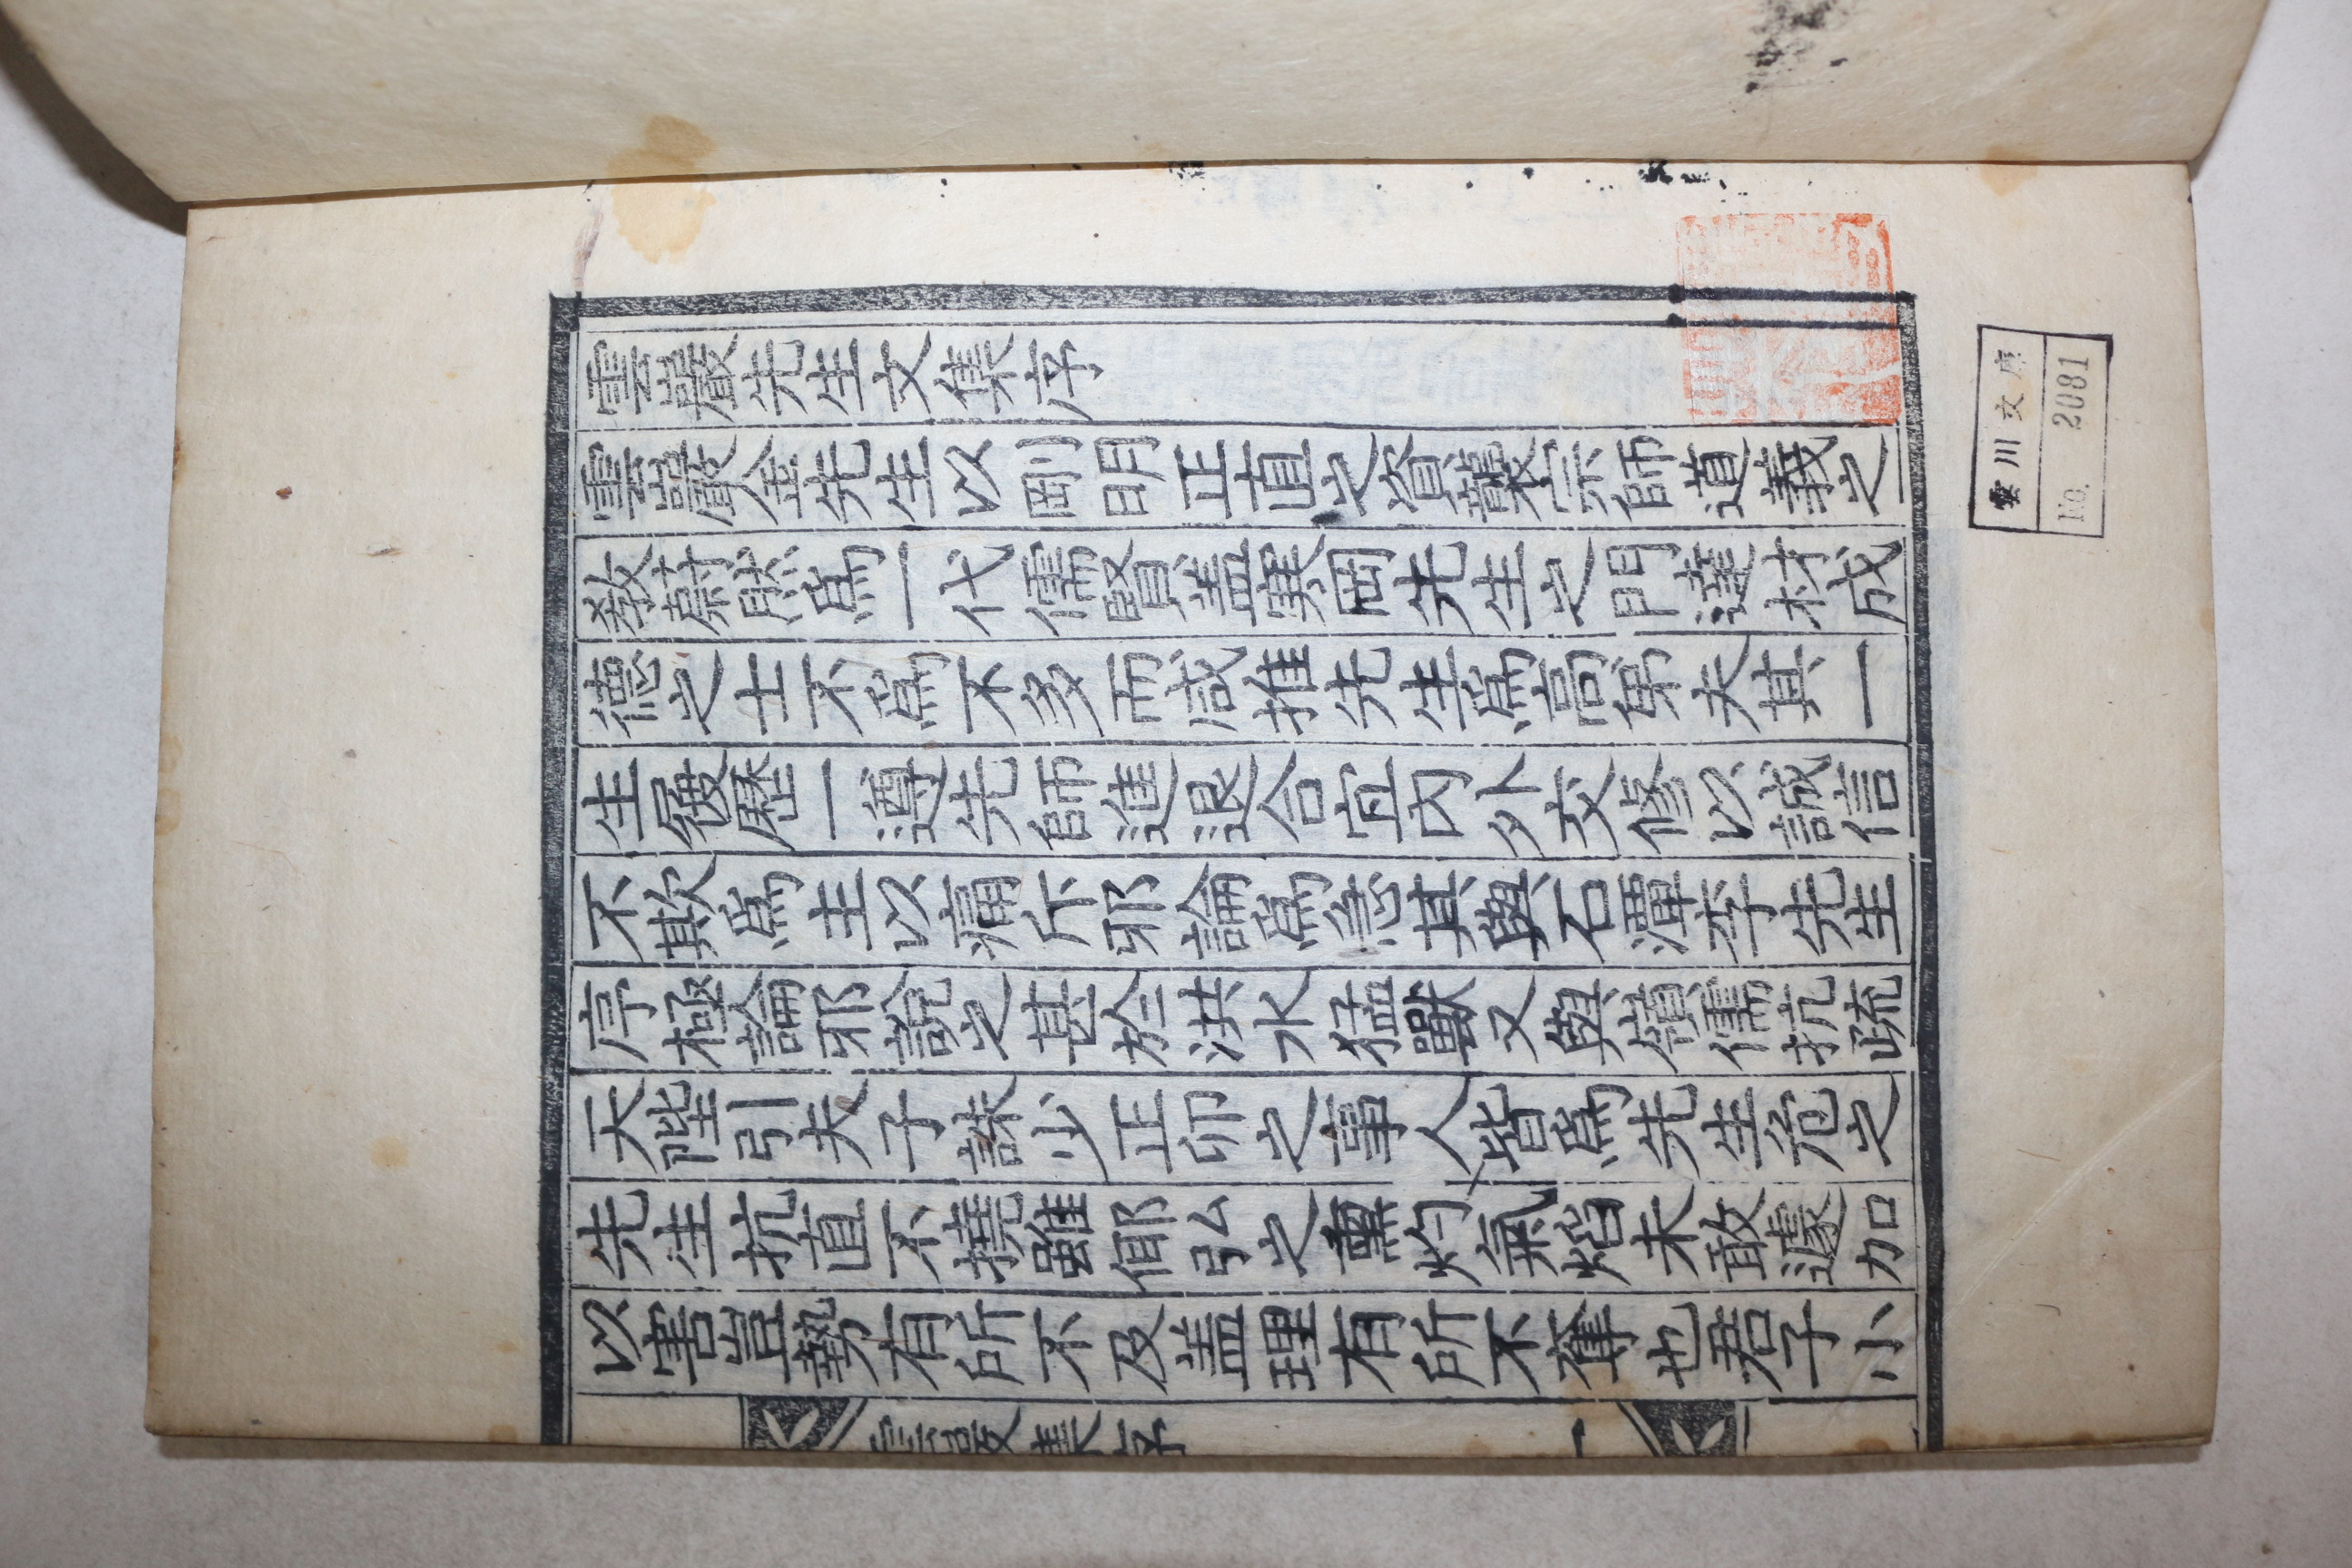 雲巖先生文集序
雲巖金先生以剛明正直之資襲宗師道義之
教蔚然爲一代儒賢盖寒岡先生之門達材成
德之士不爲不多而咸推先生爲高弟夫其一
生履歷一遵先師進退合宜內外交修以誠信
不欺爲主以痛斥邪論爲急其與石潭李先生
序極論邪說之甚於洪水猛獸又與嶺儒抗疏
天陛引夫子誅少正卯之事人皆爲先生危之
先生抗直不撓雖倻弘之熏灼氣焰未敢遽加
以害豈勢有所不及盖理有所不奪也君子小
雲巖集序 一
雲川文庫
No. 2081